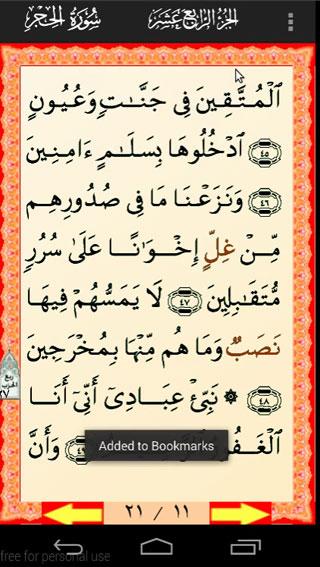 سُورَةُ الحِجْرِ الجُزْءُ الرَّابِعَ عَشَرَ
ٱلْمُتَّقِينَ فِى جَنَّـٰتٍ وَعُيُونٍ
﴿٤٥﴾ ٱدْخُلُوهَا بِسَلَـٰمٍ ءَامِنِينَ
﴿٤٦﴾ وَنَزَعْنَا مَا فِى صُدُورِهِم
مِّنْ غِلٍّ إِخْوَٰنًا عَلَىٰ سُرُرٍ
مُّتَقَـٰبِلِينَ ﴿٤٧﴾ لَا يَمَسُّهُمْ فِيهَا
نَصَبٌ وَمَا هُم مِّنْهَا بِمُخْرَجِينَ
﴿٤٨﴾ ۞ نَبِّئْ عِبَادِىٓ أَنِّىٓ أَنَا
ٱلْغَفُورُ وَأَنَّ
Added to Bookmarks
ربع الحزب ٢٧
١١ / ٢١
free for personal use